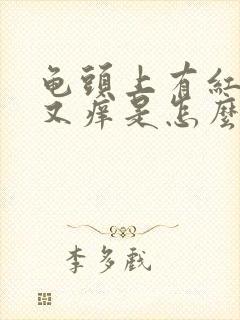 龟頭上有紅
又痒是怎麽
李多戲